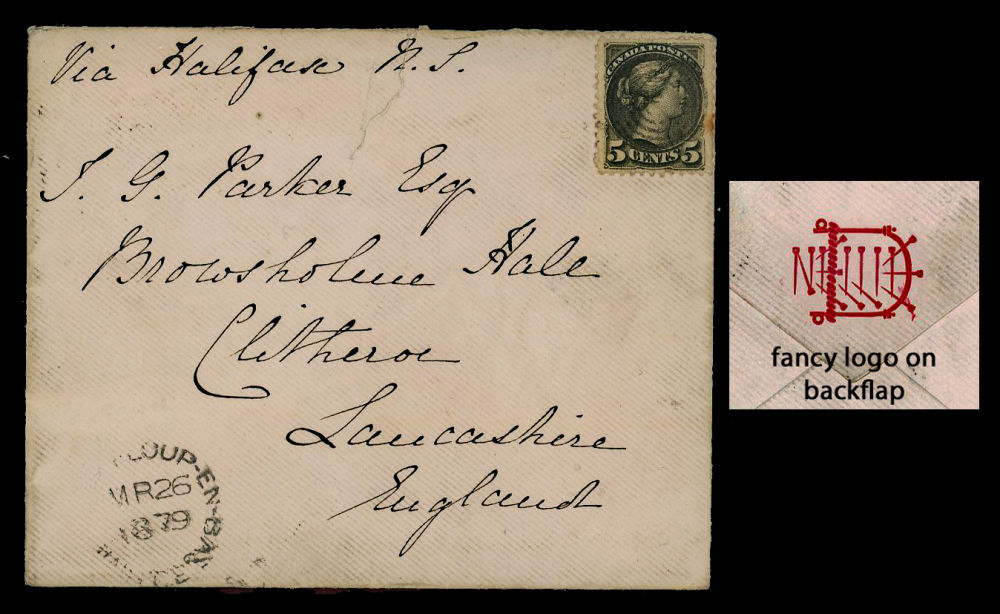 Via Halifax N.S.
CANADA POSTAGE
5 CENTS 5
T. G. Parker Esq
Browsholme Hall
Clitheroe
Lancashire
England
LOUP-EN-BA
MR 26
1879
NELLIE
fancy logo on
backflap